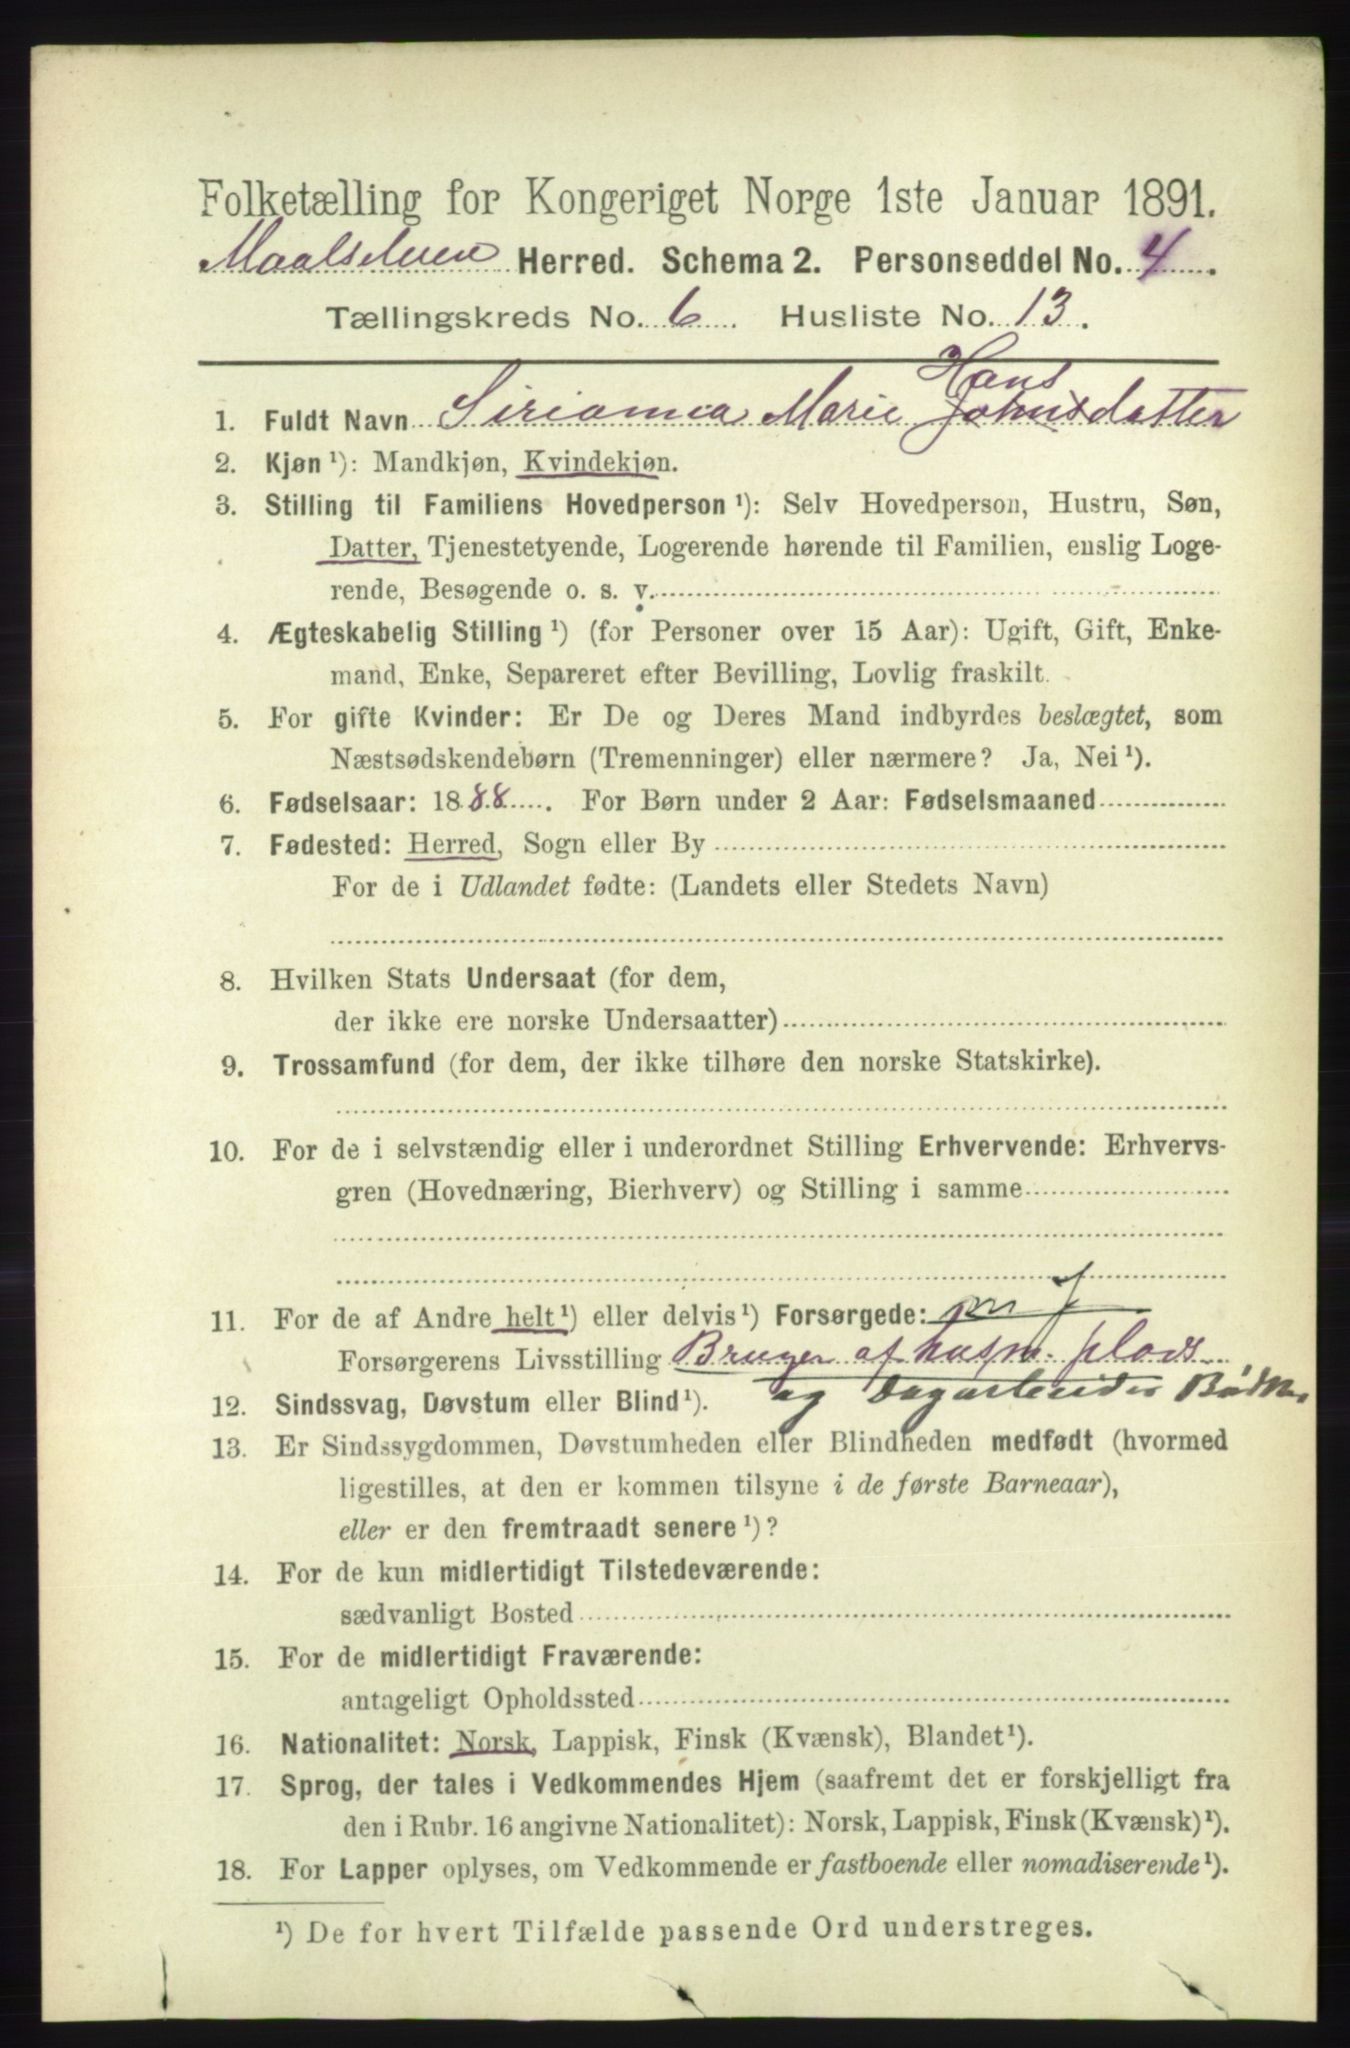 Folketælling for Kongeriget Norge 1ste Januar 1891.
Maalselven Herred. Schema 2. Personseddel No. 4.
Tællingskreds No. 6. Husliste No. 13.
Hans
1. Fuldt Navn Marie Johnsdatter
2. Kjøn ¹): Mandkjøn, Kvindekjøn.
3. Stilling til Familiens Hovedperson ¹): Selv Hovedperson, Hustru, Søn,
Datter, Tjenestetyende, Logerende hørende til Familien, enslig Loge-
rende, Besøgende o. s. v.
4. Ægteskabelig Stilling ¹) (for Personer over 15 Aar): Ugift, Gift, Enke-
mand, Enke, Separeret efter Bevilling, Lovlig fraskilt.
5. For gifte Kvinder: Er De og Deres Mand indbyrdes beslægtet, som
Næstsødskendebørn (Tremenninger) eller nærmere? Ja, Nei ¹).
6. Fødselsaar: 1888. For Børn under 2 Aar: Fødselsmaaned
7. Fødested: Herred, Sogn eller By
For de i Udlandet fødte: (Landets eller Stedets Navn)
8. Hvilken Stats Undersaat (for dem,
der ikke ere norske Undersaatter)
9. Trossamfund (for dem, der ikke tilhøre den norske Statskirke).
10. For de i selvstændig eller i underordnet Stilling Erhvervende: Erhvervs-
gren (Hovednæring, Bierhverv) og Stilling i samme
11. For de af Andre helt ¹) eller delvis ¹) Forsørgede: m J
Forsørgerens Livsstilling Bruger af husm. plads
og Dagarbeider
12. Sindssvag, Døvstum eller Blind ¹).
13. Er Sindssygdommen, Døvstumheden eller Blindheden medfødt (hvormed
ligestilles, at den er kommen tilsyne i de første Barneaar),
eller er den fremtraadt senere ¹)?
14. For de kun midlertidigt Tilstedeværende:
sædvanligt Bosted
15. For de midlertidigt Fraværende:
antageligt Opholdssted
16. Nationalitet: Norsk, Lappisk, Finsk (Kvænsk), Blandet ¹).
17. Sprog, der tales i Vedkommendes Hjem (saafremt det er forskjelligt fra
den i Rubr. 16 angivne Nationalitet): Norsk, Lappisk, Finsk (Kvænsk) ¹).
18. For Lapper oplyses, om Vedkommende er fastboende eller nomadiserende ¹).
¹) De for hvert Tilfælde passende Ord understreges.